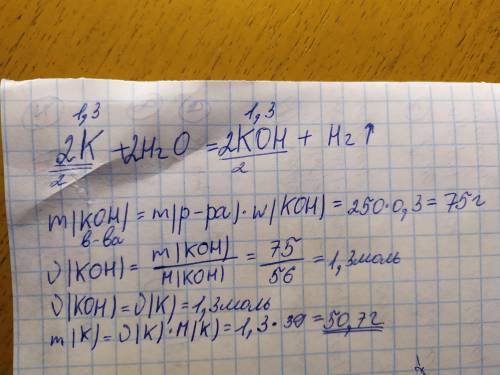 1,3 1,3
2K + 2H2O = 2KOH + H2↑
2 2
m(KOH) = m(р-ра)·w(KOH) = 250·0,3 = 75г
в-ва
υ(KOH) = m(KOH)/M(KOH) = 75/56 = 1,3моль
υ(KOH) = υ(K) = 1,3моль
m(K) = υ(K)·M(K) = 1,3·39 = 50,7г